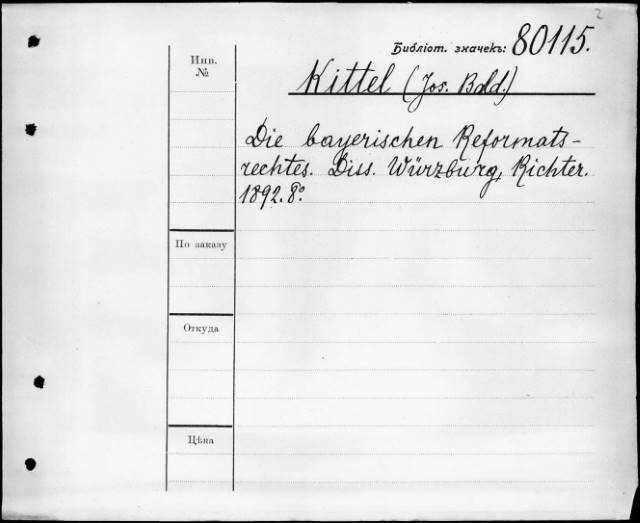 2
Библіот. значекъ: 80115.
Инв. №
Kittel (Jos. Bald.)
Die bayerischen Reformats-
rechtes. Diss. Würzburg, Richter.
1892. 8°.
По заказу
Откуда
Цѣна